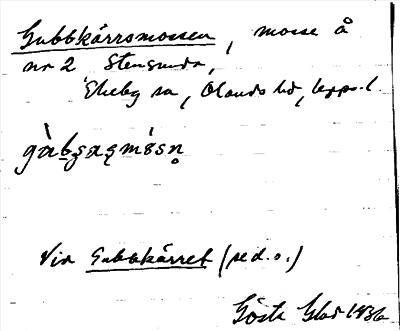 Gubbkärrsmossen, mosse å
nr 2 Stensunda,
Ekeby sn, Olands hd, Upps. l.
Vid Gubbkärret (se d. o.)
Gösta Glad 1936